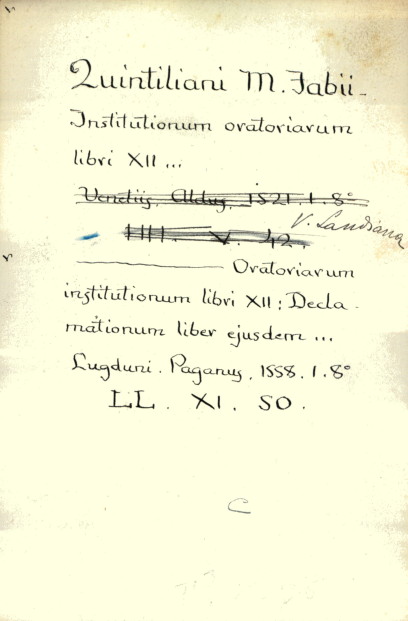 Quintiliani M. Fabii -
Institutionum oratoriarum
libri XII ...
Venetiis, Aldus, 1521. 1. 8°
V. Landiana
HH. V. 42.
Oratoriarum
institutionum libri XII; Decla -
mationum liber ejusdem ...
Lugduni. Paganus, 1558. 1. 8°
LL. XI. 50.
C